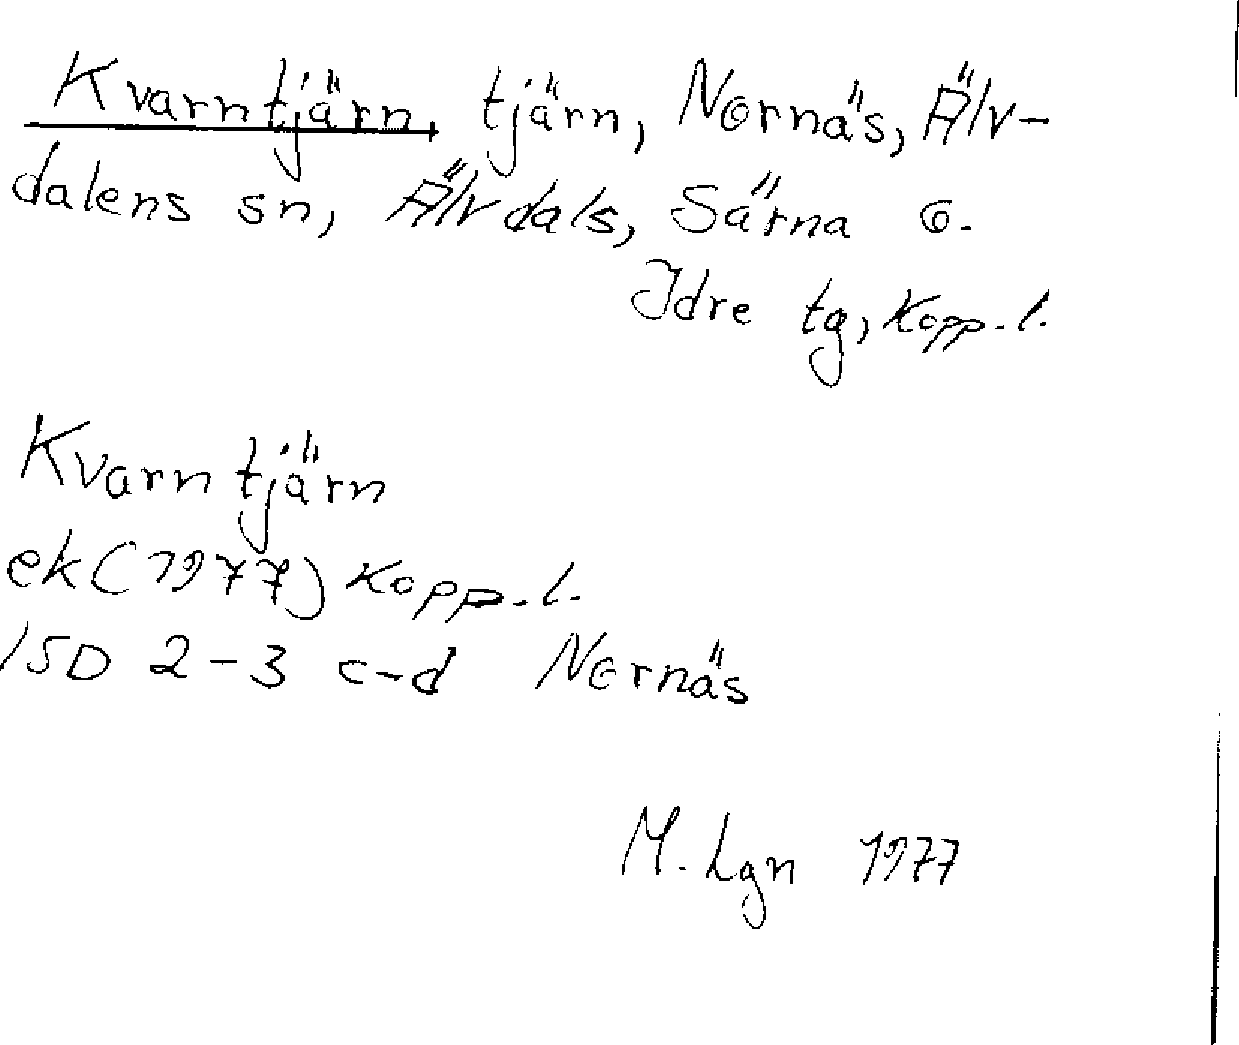 Kvarntjärn, tjärn, Nornäs, Älv-
dalens sn, Älvdals, Särna o.
Idre tg, Kopp. l.
Kvarntjärn
ek (1977) Kopp. l.
15D 2-3 c-d Nornäs
M. Lgn 1977